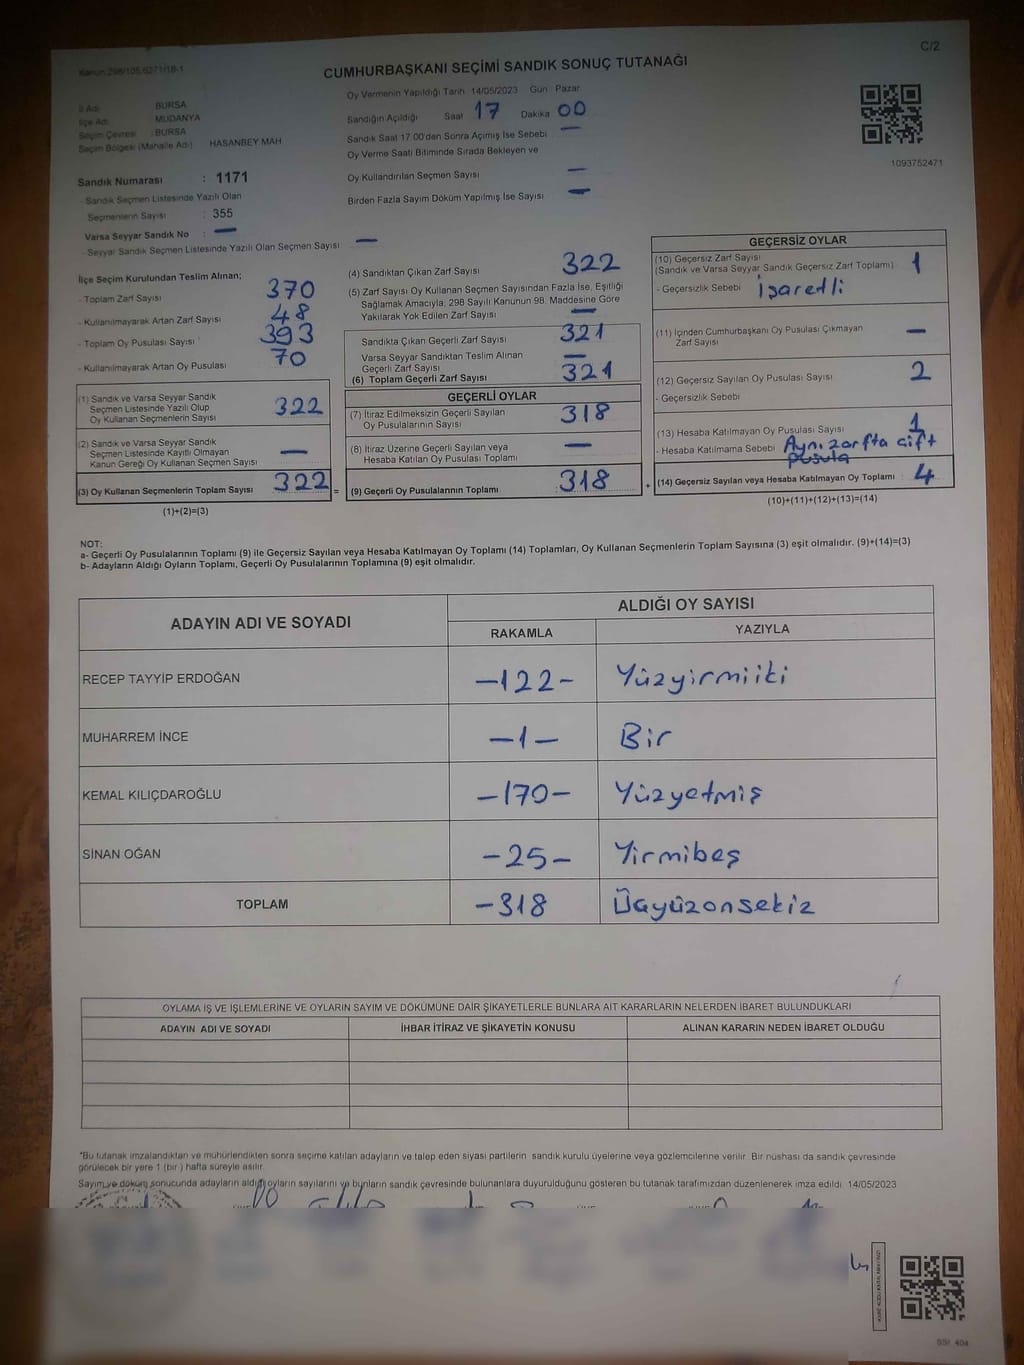 C/2
Kanun:298/105,6271/18-1
CUMHURBAŞKANI SEÇİMİ SANDIK SONUÇ TUTANAĞI
İl Adı : BURSA
İlçe Adı : MUDANYA
Seçim Çevresi : BURSA
Seçim Bölgesi (Mahalle Adı) HASANBEY MAH
Sandık Numarası : 1171
- Sandık Seçmen Listesinde Yazılı Olan
Seçmenlerin Sayısı : 355
Varsa Seyyar Sandık No : —
- Seyyar Sandık Seçmen Listesinde Yazılı Olan Seçmen Sayısı —
Oy Vermenin Yapıldığı Tarih 14/05/2023 Gün Pazar
Sandığın Açıldığı Saat 17 Dakika 00
Sandık Saat 17.00'den Sonra Açımış İse Sebebi —
Oy Verme Saati Bitiminde Sırada Bekleyen ve
Oy Kullandırılan Seçmen Sayısı —
Birden Fazla Sayım Döküm Yapılmış İse Sayısı —
1093752471
İlçe Seçim Kurulundan Teslim Alınan;
- Toplam Zarf Sayısı 370
- Kullanılmayarak Artan Zarf Sayısı 48
- Toplam Oy Pusulası Sayısı 393
- Kullanılmayarak Artan Oy Pusulası 70
(1) Sandık ve Varsa Seyyar Sandık
Seçmen Listesinde Yazılı Olup
Oy Kullanan Seçmenlerin Sayısı 322
(2) Sandık ve Varsa Seyyar Sandık
Seçmen Listesinde Kayıtlı Olmayan
Kanun Gereği Oy Kullanan Seçmen Sayısı —
(3) Oy Kullanan Seçmenlerin Toplam Sayısı 322 =
(1)+(2)=(3)
(4) Sandıktan Çıkan Zarf Sayısı 322
(5) Zarf Sayısı Oy Kullanan Seçmen Sayısından Fazla İse, Eşitliği
Sağlamak Amacıyla; 298 Sayılı Kanunun 98. Maddesine Göre
Yakılarak Yok Edilen Zarf Sayısı —
Sandıkta Çıkan Geçerli Zarf Sayısı 321
Varsa Seyyar Sandıktan Teslim Alınan
Geçerli Zarf Sayısı —
(6) Toplam Geçerli Zarf Sayısı 321
GEÇERLİ OYLAR
(7) İtiraz Edilmeksizin Geçerli Sayılan
Oy Pusulalarının Sayısı 318
(8) İtiraz Üzerine Geçerli Sayılan veya
Hesaba Katılan Oy Pusulası Toplamı —
(9) Geçerli Oy Pusulalarının Toplamı : 318 +
GEÇERSİZ OYLAR
(10) Geçersiz Zarf Sayısı
(Sandık ve Varsa Seyyar Sandık Geçersiz Zarf Toplamı) 1
- Geçersizlik Sebebi İşaretli
(11) İçinden Cumhurbaşkanı Oy Pusulası Çıkmayan
Zarf Sayısı —
(12) Geçersiz Sayılan Oy Pusulası Sayısı 2
- Geçersizlik Sebebi
(13) Hesaba Katılmayan Oy Pusulası Sayısı 1
- Hesaba Katılmama Sebebi Aynı zarfta çift
pusula
(14) Geçersiz Sayılan veya Hesaba Katılmayan Oy Toplamı : 4
(10)+(11)+(12)+(13)=(14)
NOT:
a- Geçerli Oy Pusulalarının Toplamı (9) ile Geçersiz Sayılan veya Hesaba Katılmayan Oy Toplamı (14) Toplamları, Oy Kullanan Seçmenlerin Toplam Sayısına (3) eşit olmalıdır. (9)+(14)=(3)
b- Adayların Aldığı Oyların Toplamı, Geçerli Oy Pusulalarının Toplamına (9) eşit olmalıdır.
ADAYIN ADI VE SOYADI ALDIĞI OY SAYISI
RAKAMLA YAZIYLA
RECEP TAYYİP ERDOĞAN -122- Yüzyirmiiki
MUHARREM İNCE -1- Bir
KEMAL KILIÇDAROĞLU -170- Yüzyetmiş
SİNAN OĞAN -25- Yirmibeş
TOPLAM -318 Üçyüzonsekiz
OYLAMA İŞ VE İŞLEMLERİNE VE OYLARIN SAYIM VE DÖKÜMÜNE DAİR ŞİKAYETLERLE BUNLARA AİT KARARLARIN NELERDEN İBARET BULUNDUKLARI
ADAYIN ADI VE SOYADI İHBAR İTİRAZ VE ŞİKAYETİN KONUSU ALINAN KARARIN NEDEN İBARET OLDUĞU
*Bu tutanak imzalandıktan ve mühürlendikten sonra seçime katılan adayların ve talep eden siyasi partilerin sandık kurulu üyelerine veya gözlemcilerine verilir. Bir nüshası da sandık çevresinde
görülecek bir yere 1 (bir ) hafta süreyle asılır.
Sayım ve döküm sonucunda adayların aldığı oyların sayılarını ve bunların sandık çevresinde bulunanlara duyurulduğunu gösteren bu tutanak tarafımızdan düzenlenerek imza edildi. 14/05/2023